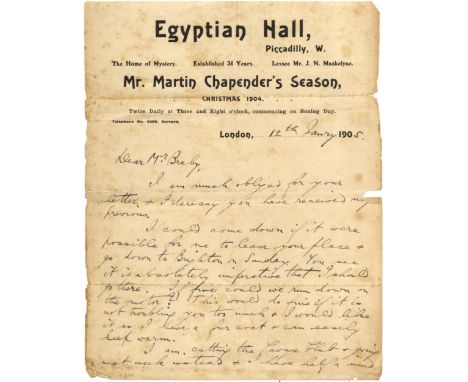 Egyptian Hall,
Piccadilly, W.
The Home of Mystery. Established 31 Years. Lessee Mr. J. N. Maskelyne.
Mr. Martin Chapender's Season,
CHRISTMAS 1904.
Twice Daily at Three and Eight o'clock, commencing on Boxing Day.
Telephone No. Gerrard.
London, 12th Janry 1905.
Dear Mr Braby,
I am much obliged for your
letter, & I daresay you have received my
previous.
I could come down if it were
possible for me to leave your place &
go down to Brighton on Sunday. You see
it is absolutely imperative that I should
go there. If fine could we run down on
the motor? This would do fine if it is
not troubling you too much & I would like
it as I have a fur coat & can easily
keep warm.
I am cutting the Club & going
next week instead & I have half a mind